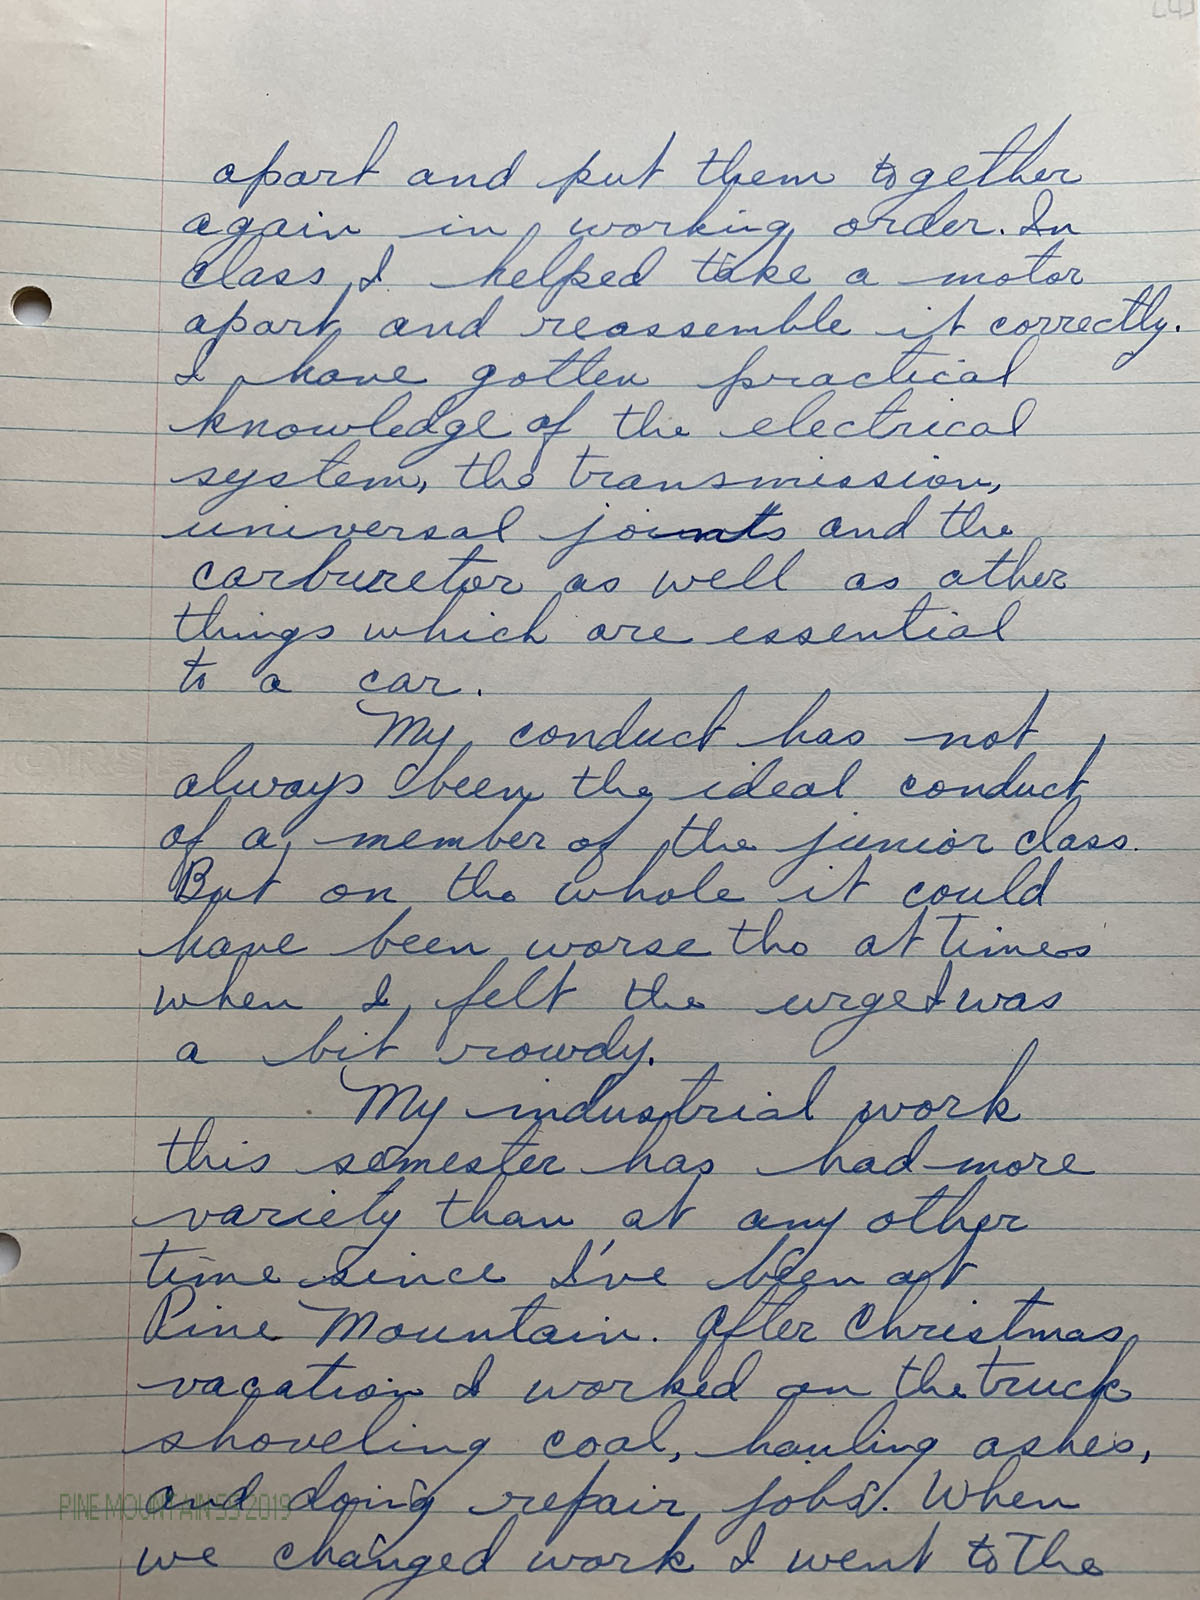 [4]
apart and put them together
again in working order. In
class I helped take a motor
apart and reassemble it correctly.
I have gotten practical
knowledge of the electrical
system, the transmission,
universal joints and the
carburetor as well as other
things which are essential
to a car.
My conduct has not
always been the ideal conduct
of a member of the junior class.
But on the whole it could
have been worse tho at times
when I felt the urge I was
a bit rowdy.
My industrial work
this semester has had more
variety than at any other
time since I've been at
Pine Mountain. After Christmas
vacation I worked on the truck
shoveling coal, hauling ashes,
and doing repair jobs. When
PINE MOUNTAIN SS 2019
we changed work I went to the